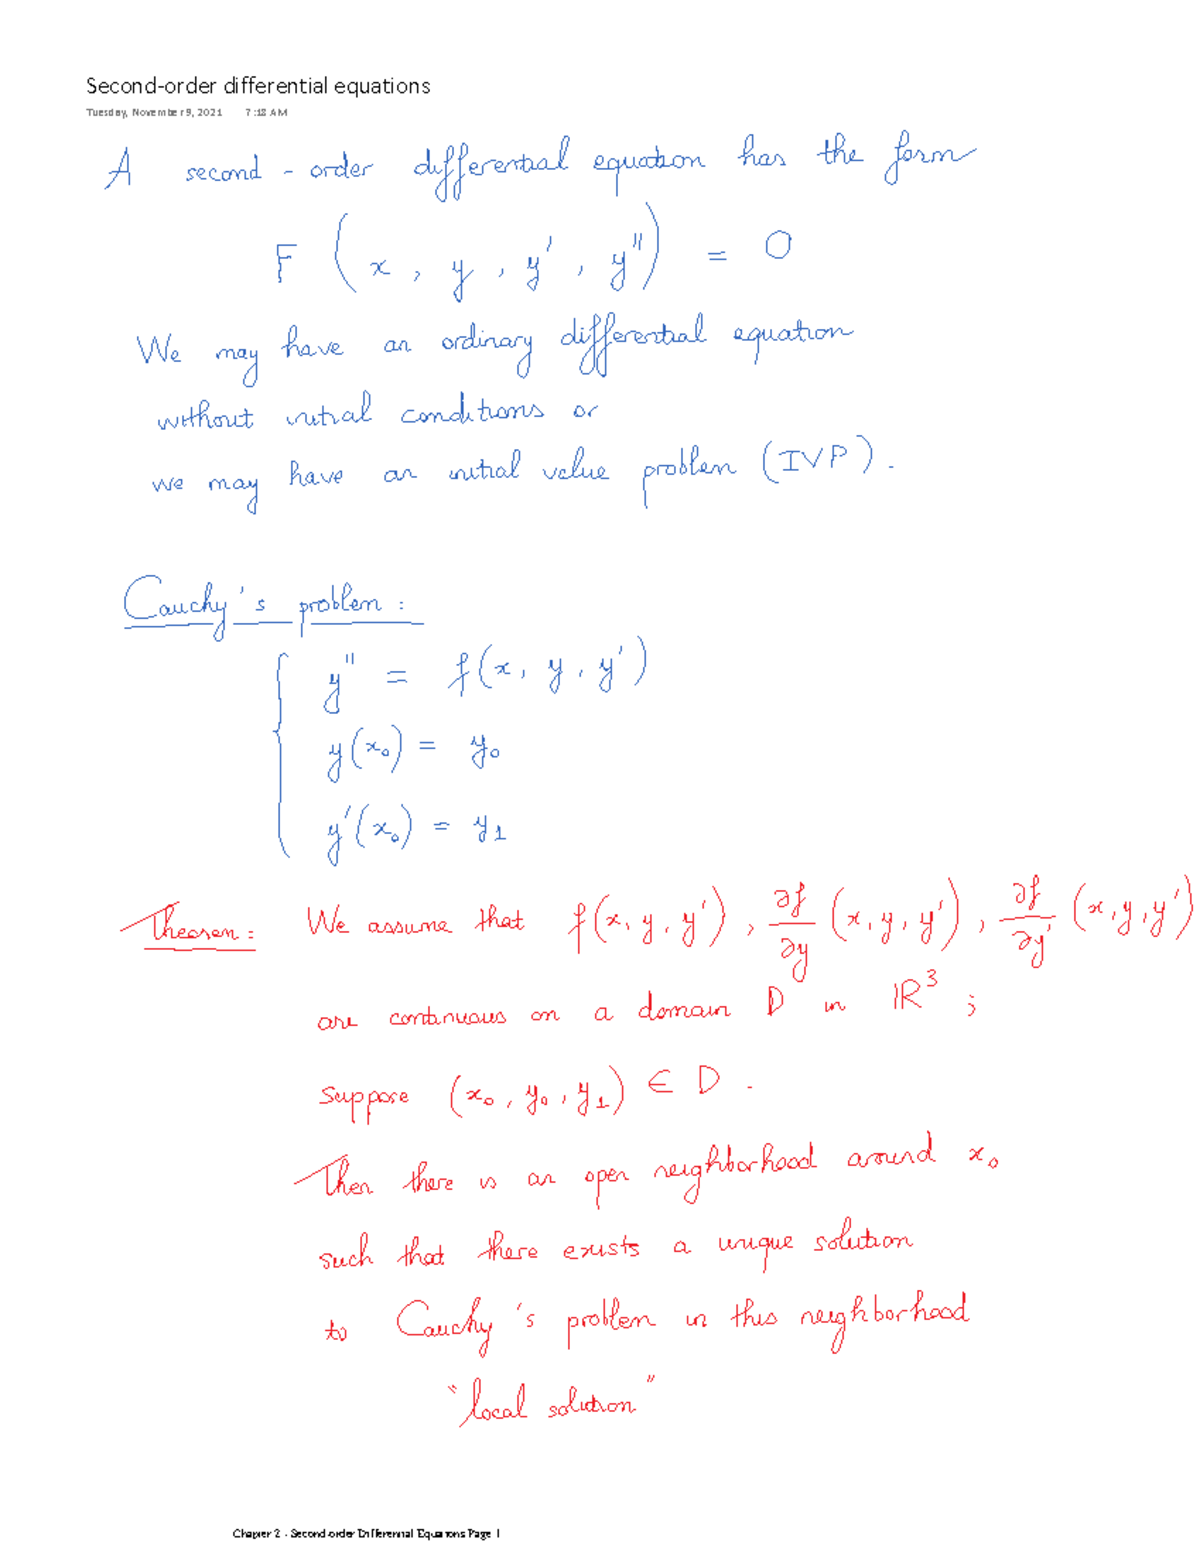 Second-order differential equations
Tuesday, November 9, 2021 7:18 AM
A second-order differential equation has the form
F (x, y, y', y'') = 0
We may have an ordinary differential equation
without initial conditions or
we may have an initial value problem (IVP).
Cauchy's problem:
{ y'' = f(x, y, y')
y(x₀) = y₀
y'(x₀) = y₁
Theorem: We assume that f(x, y, y'), ∂f/∂y (x, y, y'), ∂f/∂y' (x, y, y')
are continuous on a domain D in ℝ³;
suppose (x₀, y₀, y₁) ∈ D.
Then there is an open neighborhood around x₀
such that there exists a unique solution
to Cauchy's problem in this neighborhood
"local solution"
Chapter 2 - Second-order Differential Equations Page 1